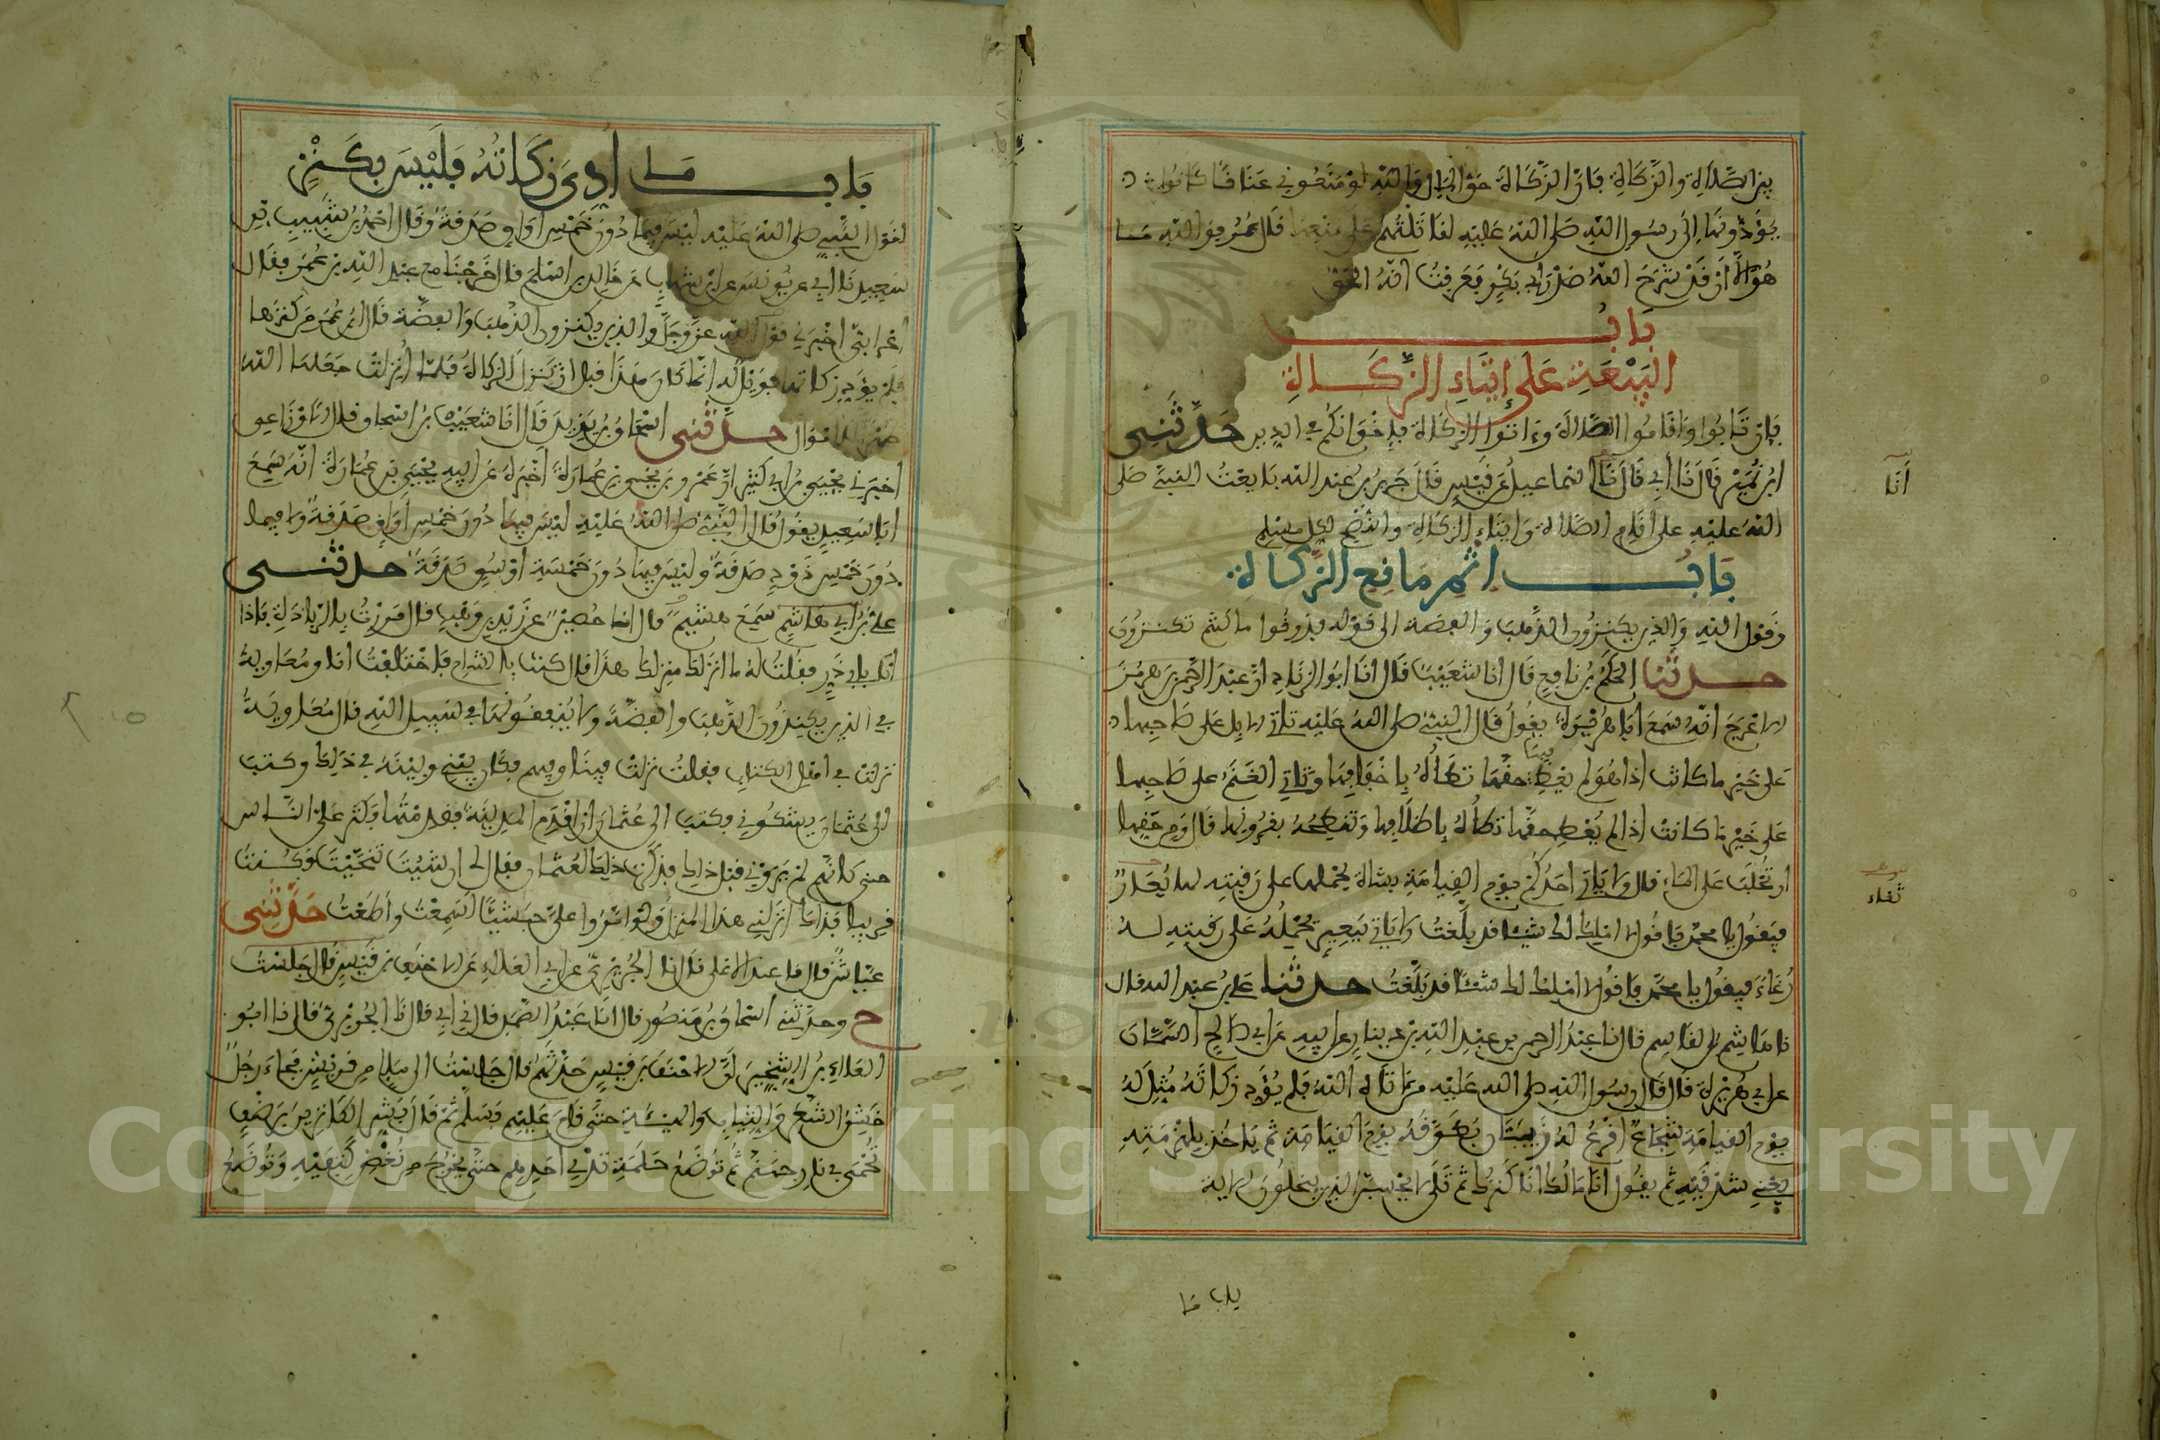 بين الصلاة والزكاة فان الزكاة حق المال والله لو منعوني عناقا كانوا
يؤدونها الى رسول الله صلى الله عليه لقاتلتهم على منعها قال عمر فوالله ما
هو الا ان قد شرح الله صدر ابي بكر فعرفت انه الحق
باب
البيعة على ايتاء الزكاة
فان تابوا واقاموا الصلاة وءاتوا الزكاة فاخوانكم في الدين حدثني
ابن نمير قال نا ابي قال نا اسماعيل عن قيس قال جرير بن عبد الله بايعت النبي صلى
الله عليه على اقام الصلاة وايتاء الزكاة والنصح لكل مسلم
باب اثم مانع الزكاة
وقول الله والذين يكنزون الذهب والفضة الى قوله فذوقوا ما كنتم تكنزون
حدثنا الحكم بن نافع قال انا شعيب قال انا ابو الزناد ان عبد الرحمن بن هرمز
الاعرج انه سمع ابا هريرة يقول قال النبي صلى الله عليه تاتي الابل على صاحبها
على خير ما كانت اذا هو لم يعط فيها حقها تطأه باخفافها وتاتي الغنم على صاحبها
على خير ما كانت اذا لم يعط حقها تطأه باظلافها وتنطحه بقرونها قال ومن حقها
ان تحلب على الماء قال ولا ياتي احدكم يوم القيامة بشاة يحملها على رقبته لها يعار
فيقول يا محمد فاقول لا املك لك شيئا قد بلغت ولا ياتي ببعير يحمله على رقبته له
رغاء فيقول يا محمد فاقول لا املك لك شيئا قد بلغت حدثنا علي بن عبد الله قال
نا هاشم بن القاسم قال نا عبد الرحمن بن عبد الله بن دينار عن ابيه عن ابي صالح السمان
عن ابي هريرة قال قال رسول الله صلى الله عليه من اتاه الله فلم يؤد زكاته مثل له
يوم القيامة شجاع اقرع له زبيبتان يطوقه يوم القيامة ثم ياخذ بلهزمتيه
يعني شدقيه ثم يقول انا مالك انا كنزك ثم تلا لا يحسبن الذين يبخلون الاية
انا
ثغاء
باب ما
باب ما ادي زكاته فليس بكنز
لقول النبي صلى الله عليه ليس فيما دون خمس اواق صدقة وقال احمد بن شبيب بن
سعيد نا ابي عن يونس عن ابن شهاب عن خالد بن اسلم قال خرجنا مع عبد الله بن عمر فقال
اعرابي اخبرني قول الله عز وجل والذين يكنزون الذهب والفضة قال ابن عمر من كنزها
فلم يؤد زكاتها فويل له انما كان هذا قبل ان تنزل الزكاة فلما انزلت جعلها الله
طهرا للاموال حدثني اسحاق بن يزيد قال انا شعيب بن اسحاق قال الاوزاعي
اخبرني يحيى بن ابي كثير ان عمرو بن يحيى بن عمارة اخبره عن ابيه يحيى بن عمارة انه سمع
ابا سعيد يقول قال النبي صلى الله عليه ليس فيما دون خمس اواق صدقة ولا فيما
دون خمس ذود صدقة وليس فيما دون خمسة اوسق صدقة حدثني
علي بن ابي هاشم سمع هشيم قال انا حصين عن زيد بن وهب قال مررت بالربذة فاذا
انا بابي ذر فقلت له ما انزلك منزلك هذا قال كنت بالشام فاختلفت انا ومعاوية
في الذين يكنزون الذهب والفضة ولا ينفقونها في سبيل الله قال معاوية
نزلت في اهل الكتاب فقلت نزلت فينا وفيهم فكان بيني وبينه في ذلك وكتب
الى عثمان يشكوني فكتب الى عثمان ان اقدم المدينة فقدمتها فكثر علي الناس
حتى كانهم لم يروني قبل ذلك فذكرت ذلك لعثمان فقال لي ان شئت تنحيت فكنت
قريبا فذاك انزلني هذا المنزل ولو امروا علي حبشيا لسمعت واطعت حدثني
عياش قال نا عبد الاعلى قال نا الجريري عن ابي العلاء عن الاحنف بن قيس قال جلست
ح وحدثني اسحاق بن منصور قال انا عبد الصمد قال ني ابي قال نا الجريري قال نا ابو
العلاء بن الشخير ان الاحنف بن قيس حدثهم قال جلست الى ملا من قريش فجاء رجل
خشن الشعر والثياب والهيئة حتى قام عليهم فسلم ثم قال بشر الكانزين برضف
يحمى في نار جهنم ثم توضع على حلمة ثدي احدهم حتى يخرج من نغض كتفيه وتوضع
Copyright © King Saud University